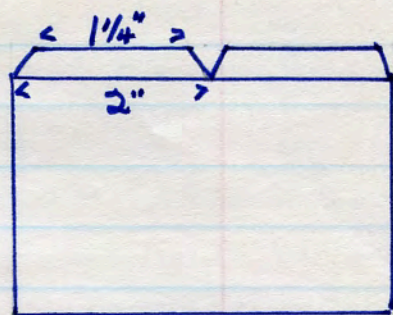 < 1 1/4" >
< 2" >